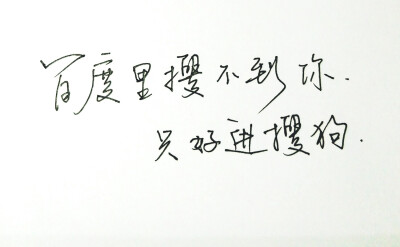 百度里搜不到你.
只好进搜狗.